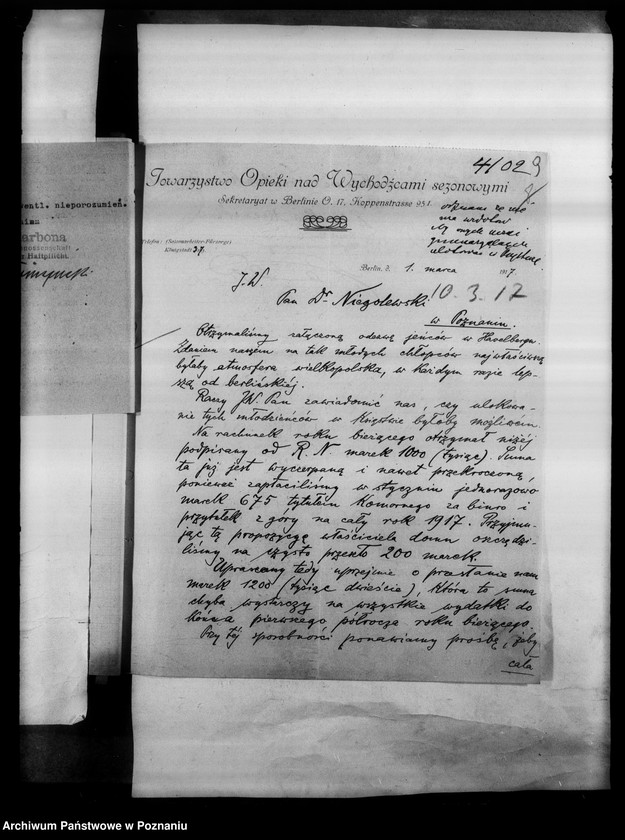 4102 9
Towarzystwo Opieki nad Wychodźcami sezonowymi
Sekretaryat w Berlinie O. 17, Koppenstrasse 95 I.
Telefon: (Saisonarbeiter-Fürsorge)
Königstadt 37.
Berlin, d. 1. marca 1917.
10.3.17
J. W.
Pan Dr Niegolewski
w Poznaniu.
Otrzymaliśmy załączoną odezwę jeńców w Havelbergu.
Zdaniem naszem na tak młodych chłopców najwłaściwszą
byłaby atmosfera wielkopolska, w każdym razie lep-
szą od berlińskiej.
Raczy JW. Pan zawiadomić nas, czy ulokowa-
nie tych młodzieńców w Księstwie byłoby możliwem.
Na rachunek roku bieżącego otrzymał niżej
podpisany od R. N. marek 1000 (tysiąc). Suma
ta już jest wyczerpaną i nawet przekroczoną,
ponieważ zapłaciliśmy w styczniu jednorazowo
marek 675 tytułem komornego za biuro i
przytułek z góry na cały rok 1917. Przyjmu-
jąc tę propozycję właściciela domu oszczędzi-
liśmy na czysto przeszło 200 marek.
Upraszamy tedy uprzejmie o przesłanie nam
marek 1200 (tysiąc dwieście), która to suma
chyba wystarczy na wszystkie wydatki do
końca pierwszego półrocza roku bieżącego.
Przy tej sposobności ponawiamy prośbę, żeby
cała
wentl. nieporozumień.
arbona
Archiwum Państwowe w Poznaniu